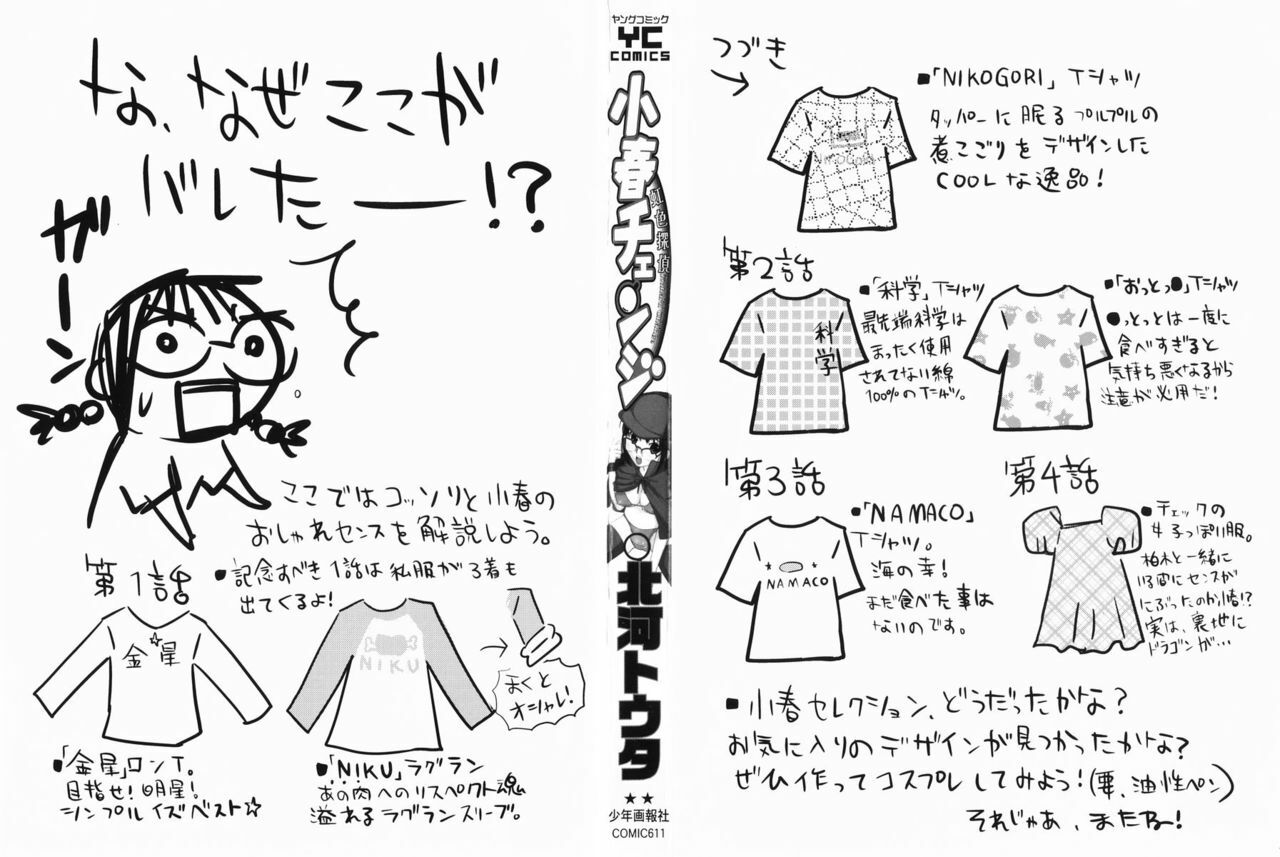 な、なぜここが
バレたー!?
ガーン
ここではコッソリと小春の
おしゃれセンスを解説しよう。
第1話
■記念すべき1話は私服が3着も
出てくるよ!
金☆星
NIKU
まくと
オシャレ!
■「金星」ロンT。
目指せ!明星!
シンプルイズベスト☆
■「NIKU」ラグラン
あの肉へのリスペクト魂
溢れるラグランスリーブ。
ヤングコミック
YC
COMICS
小春チェンジ
虹色探偵
北河トウタ
★★
少年画報社
COMIC611
つづき
■「NIKOGORI」Tシャツ
タッパーに眠るプルプルの
煮こごりをデザインした
COOLな逸品!
NIKOGORI
第2話
科学
■「科学」Tシャツ
最先端科学は
まったく使用
されてない綿
100%のTシャツ。
■「おっとっ●」Tシャツ
●っとっとは一度に
食べすぎると
気持ち悪くなるから
注意が必用だ!
第3話
NAMACO
■「NAMACO」
Tシャツ。
海の幸!
まだ食べた事は
ないのです。
第4話
■チェックの
女子っぽい服。
柏木と一緒に
実は、裏地に
ドラゴンが…
■小春セレクション、どうだったかな?
お気に入りのデザインが見つかったかな?
ぜひ作ってコスプレしてみよう!(要、油性ペン)
それじゃあ、またねー!